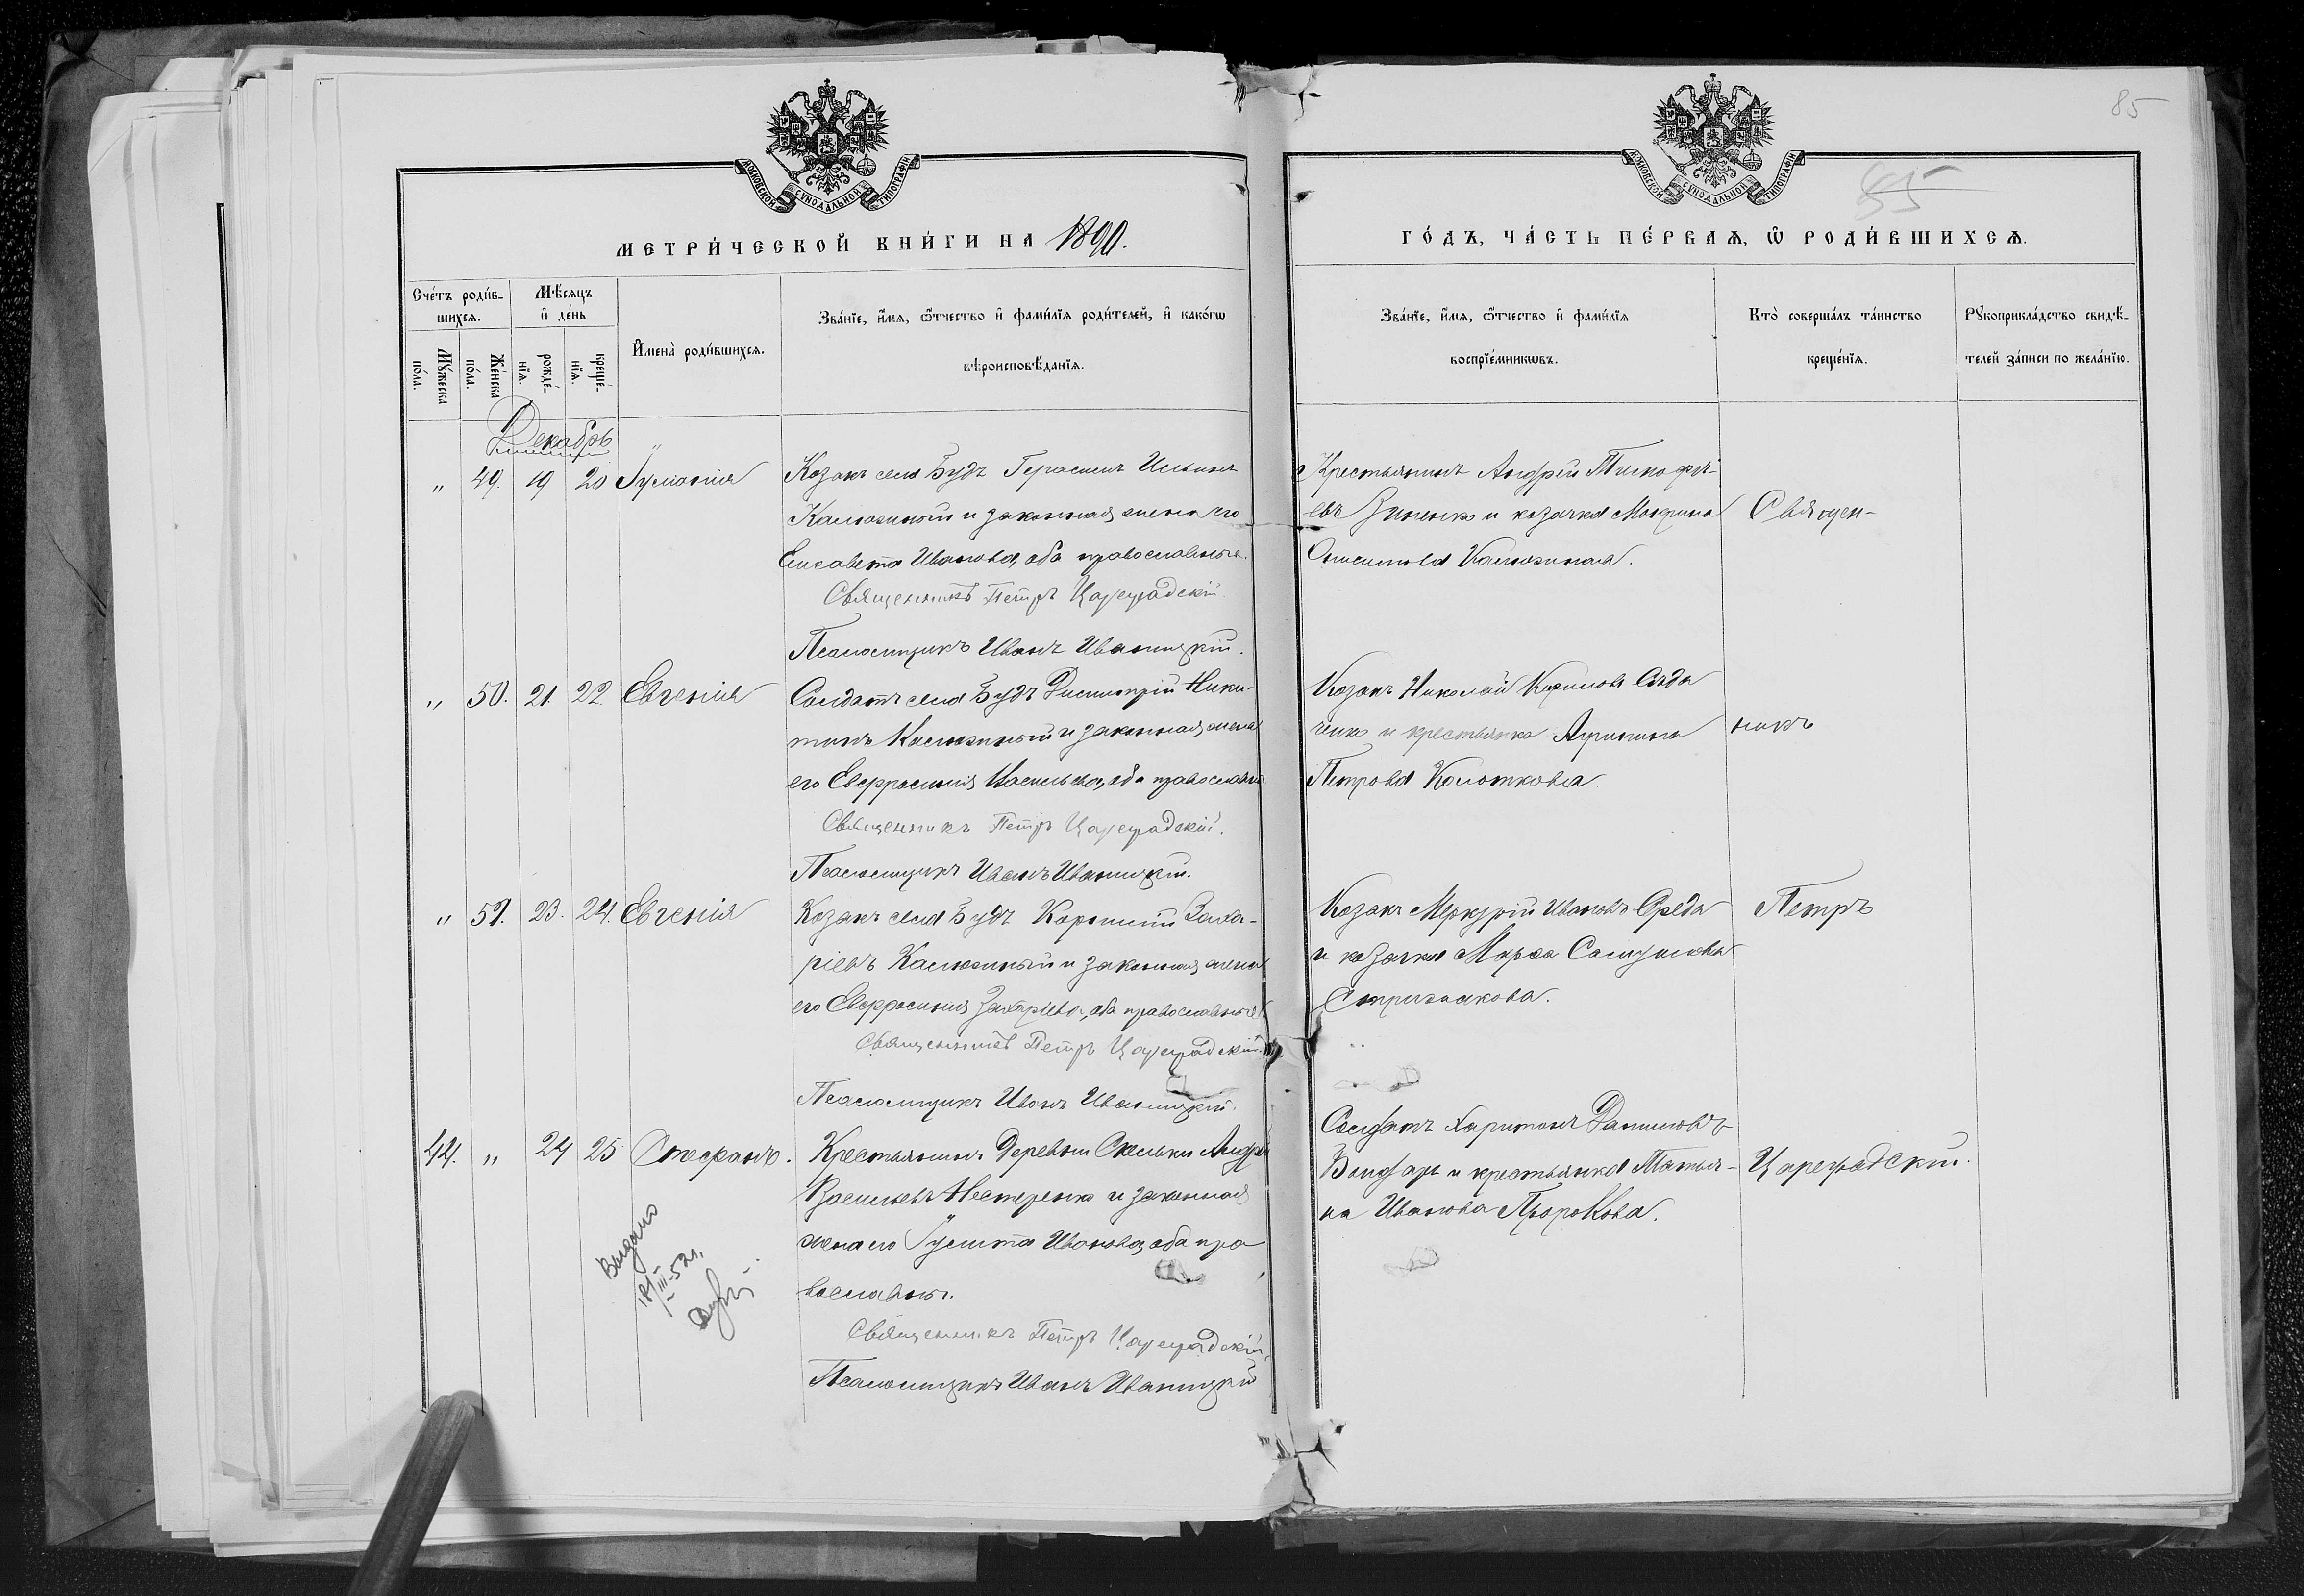 85
85
МОСКОВСКОЙ СѴНОДАЛЬНОЙ ТИПОГРАФІИ
МОСКОВСКОЙ СѴНОДАЛЬНОЙ ТИПОГРАФІИ
МЕТРИ́ЧЕСКОЙ КНИ́ГИ НА 1890.
ГО́ДЪ, ЧА́СТЬ ПЕ́РВАѦ, Ѡ҆ РОДИ́ВШИХСѦ.
Сче́тъ роди́в-
шихсѧ.
Мѣ́сѧцъ
и҆ де́нь
Мꙋ́жеска
по́ла.
Же́нска
по́ла.
рожде́-
нїѧ.
креще́-
нїѧ.
И҆мена̀ роди́вшихсѧ.
Зва́нїе, и҆́мѧ, ѻ҆́тчество и҆ фами́лїѧ роди́телей, и҆ како́гѡ
вѣроисповѣ́данїѧ.
Зва́нїе, и҆́мѧ, ѻ҆́тчество и҆ фами́лїѧ
воспрїе́мникѡвъ.
Кто̀ соверша́лъ та́инство
креще́нїѧ.
Рꙋкоприкла́дство свидѣ́-
телей за́писи по жела́нїю.
Декабрь
„ 49. 19 20 Іуліанія Козакъ села Будъ Герасимъ Ильинъ
Калюжный и законная жена его
Елисавета Иванова, оба православные.
Священникъ Петръ Цареградскій
Псаломщикъ Иванъ Иваницкій.
Крестьянинъ Андрей Тимофе-
евъ Зиненко и козачка
Калюжная.
Священ-
„ 50. 21. 22. Евгенія Солдатъ села Будъ Димитрій Ники-
тинъ Калюжный и законная жена
его Евфросинія Васильева, оба православные
Священникъ Петръ Цареградскій.
Псаломщикъ Иванъ Иваницкій.
Козакъ Николай
и крестьянка
Петрова Колоткова.
никъ
„ 51. 23. 24. Евгенія Козакъ села Будъ Корнилій Заха-
ріевъ Калюжный и законная жена
его Евфросинія Захаріева, оба православные
Священникъ Петръ Цареградскій.
Псаломщикъ Иванъ Иваницкій.
Козакъ Меркурій Ивановъ Середа
и козачка Марѳа
Стрижакова.
Петръ
44. „ 24 25 Стефанъ. Крестьянинъ деревни Скельки Андрей
Васильевъ Нестеренко и законная
жена его Іулитта Иванова, оба пра
вославны.
Священникъ Петръ Цареградскій,
Псаломщикъ Иванъ Иваницкій
Солдатъ Харитонъ Даниловъ
и крестьянка Татья-
на Иванова Пророкова.
Цареградскій.
Выдано
18/III-52 г.